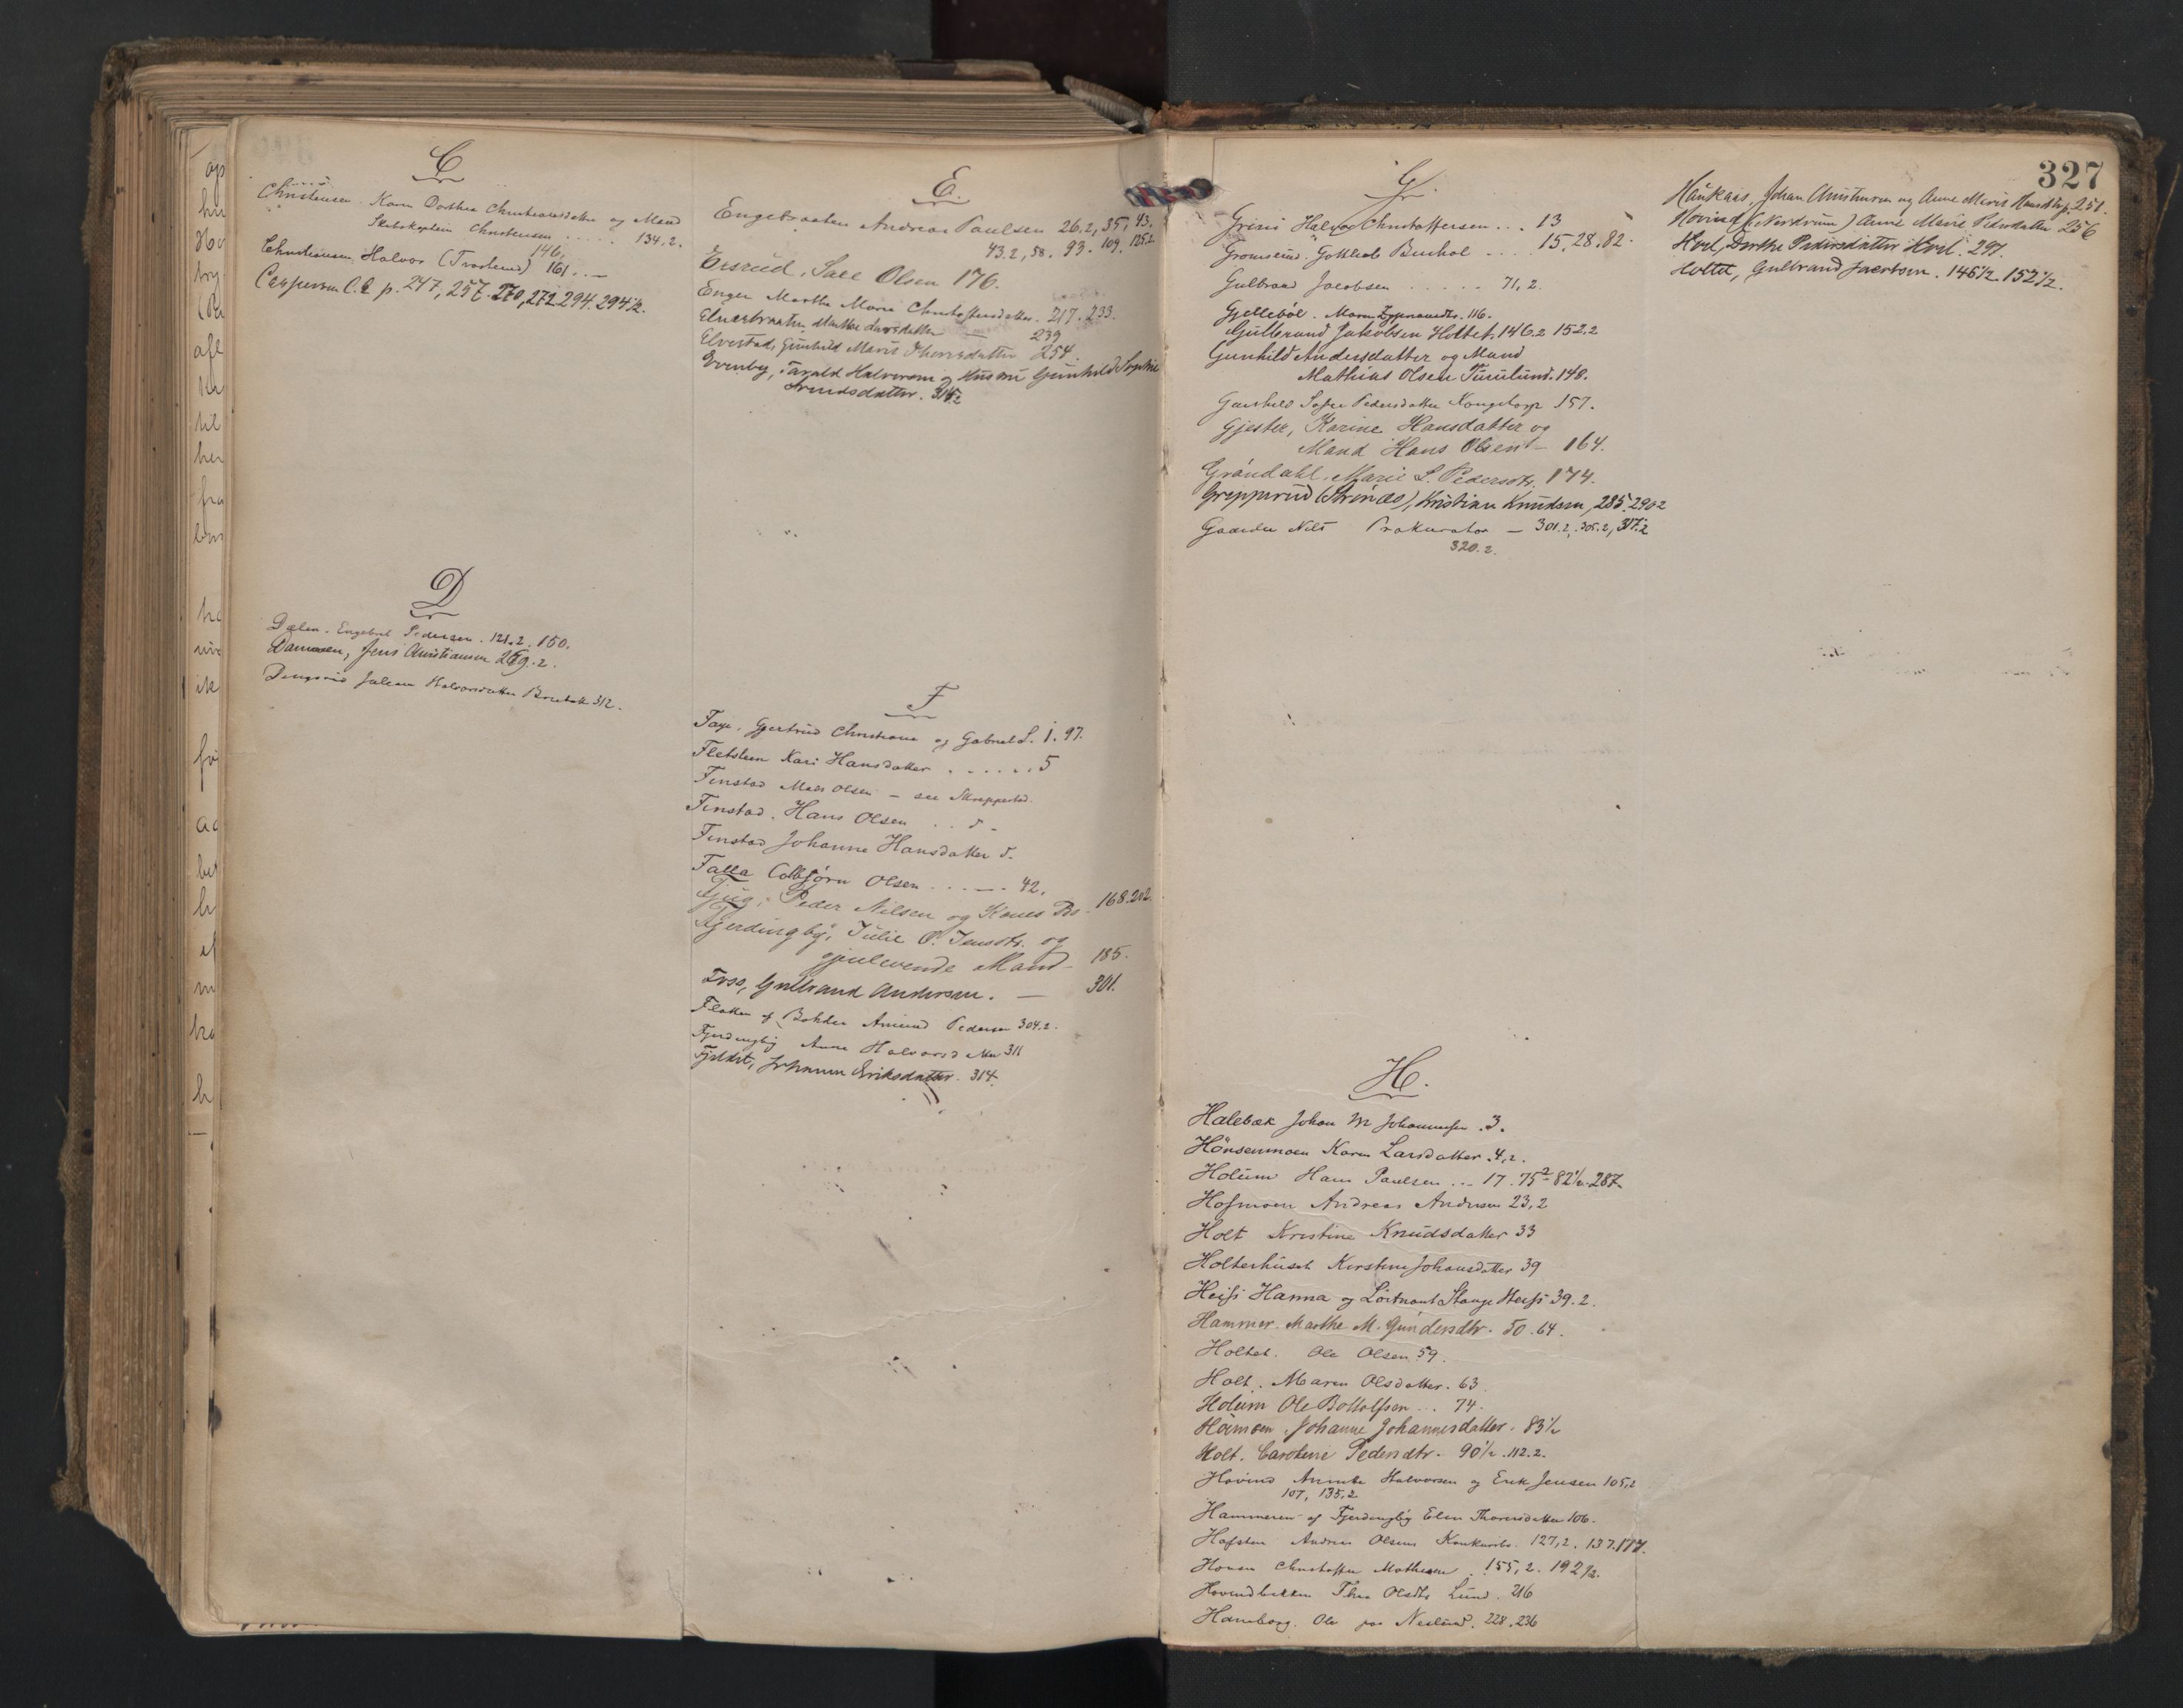 C
Christensen Karen Dorthea Christiansdatter og Mand
Skibskaptein Christensen ..... 134,2.
146,
Christiansen, Halvor (Trosterud) 161. –
Caspersen C. E p. 247, 257. 270, 272. 294. 294½.
D
Dælen. Engebret Pedersen. 121.2. 150.
Damosen, Jens Christiansen 269.2.
Halvorsdatter 312.
E.
Engebraaten Andreas Paulsen 26.2, 35, 43.
43.2, 58. 93. 109. 125.2.
Ersrud, Olsen 176.
Enger Marthe Marie Christoffersdatter. 217. 233.
Marthe Larsdatter — 239
Elvestad, Gunhild Marie Thorsdatter 254.
Evenby, Tarald Halvorsen og Hustru Gunhild Sophie
Arnesdatter. 314.2
F
Faye, Gjertrud Christiane og Gabriel S. 1. 97.
Fletsteen Kari Hansdatter ...... 5
Finstad Mads Olsen – see Skreppestad.
Finstad. Hans Olsen .. d –
Finstad Johanne Hansdatter d.
Falla Colbjørn Olsen ..... 42.
Fjug, Peder Nilsen og Kones Bo – 168.202.
Fjerdingby, Julie P. Jensdtr. og
gjenlevende Mand – 185.
Foss, Gulbrand Andersen. — 301.
Flaten af Bohler Amund Pedersen 304.2.
Fjerdingby Anne Halvorsdatter 311
Fjeldet, Johanne Eriksdatter. 314.
G.
Grini Halvor Christoffersen ... 13
Gromsrud. Gottlieb .... 15, 28. 82.
Gulbrand Jacobsen ..... 71, 2.
Gjellebøl. Maren 116.
Gulbrand Jakobsen Holtet. 146.2 152.2
Gunhild Andersdatter og Mand
Mathias Olsen 148.
Gunhild Sofie Pedersdatter Kongstorp 157.
Gjester, Karine Hansdatter og
Mand Hans Olsen – 164.
Grøndahl, Marie L. Pedersdtr. 174.
Grepperud (Strinæs), Kristian Knudsen, 285. 290.2
Gaarder Nils Prokurator – 301.2, 305.2, 317.2
320.2.
H.
Halebæk Johan M Johannessen .3.
Hønsenmoen Karen Larsdatter .4,2.
Holum Hans Paulsen ... 17. 75² 82½. 287.
Hofmoen Andreas Andersen 23,2
Holt Kristine Knudsdatter 33
Holterhuset Kirstine Johansdatter 39
Heiss Hanna og Løitnant Stange Heiss 39.2.
Hammer. Marthe M. Gundersdtr. 50. 64.
Holtet. Ole Olsen 59.
Holt. Maren Olsdatter. 63
Holum Ole Bottolfsen ... 74.
Johanne Johannesdatter. 83½
Holt. Caroline Pedersdtr. 90½. 112.2.
Hovind Halvorsen og Erik Jensen 105,2
107, 135,2
Hammeren af Fjerdingby Elen Thorersdatter 106.
Hofsten Andreas Olsens Konkursbo. 127,2. 137. 177.
Christoffer Mathisen 155,2. 192½.
Hovindbakken Olsdtr Lund. 216
Haneborg. Ole paa Neslund. 228. 236
327
Haukaas, Johan Amundsen og Anne Marie 251.
Hovind (Nordrum) Anne Marie Pedersdatter 256
Hvel, Dorthe Pedersdatter Hvel. 297.
Holtet, Gulbrand Jacobsen. 146½. 152½.